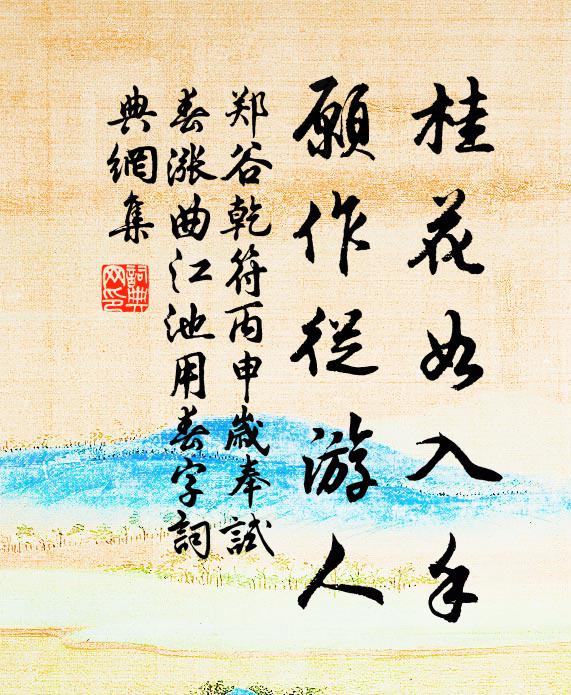 桂花如入手
願作從游人
郑谷乾符丙申歳奉試
春漲曲江池用春字詞
典網集
詞典網印